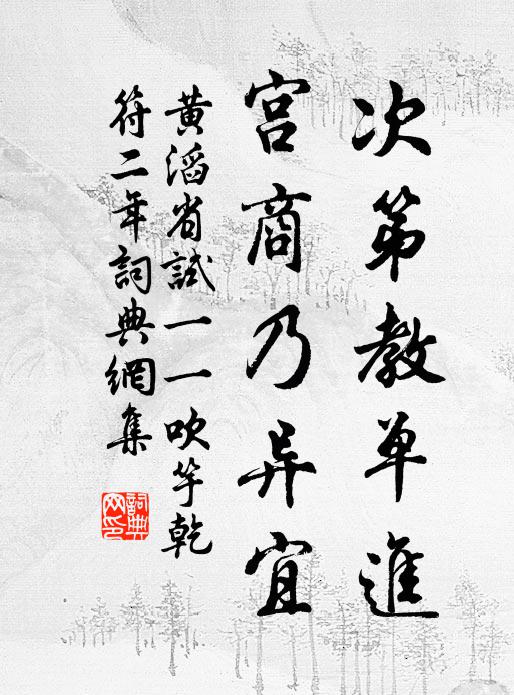 次第教单進
宫商乃异宜
黄滔省試一一吹竽乾
符二年詞典網集
詞典
网印